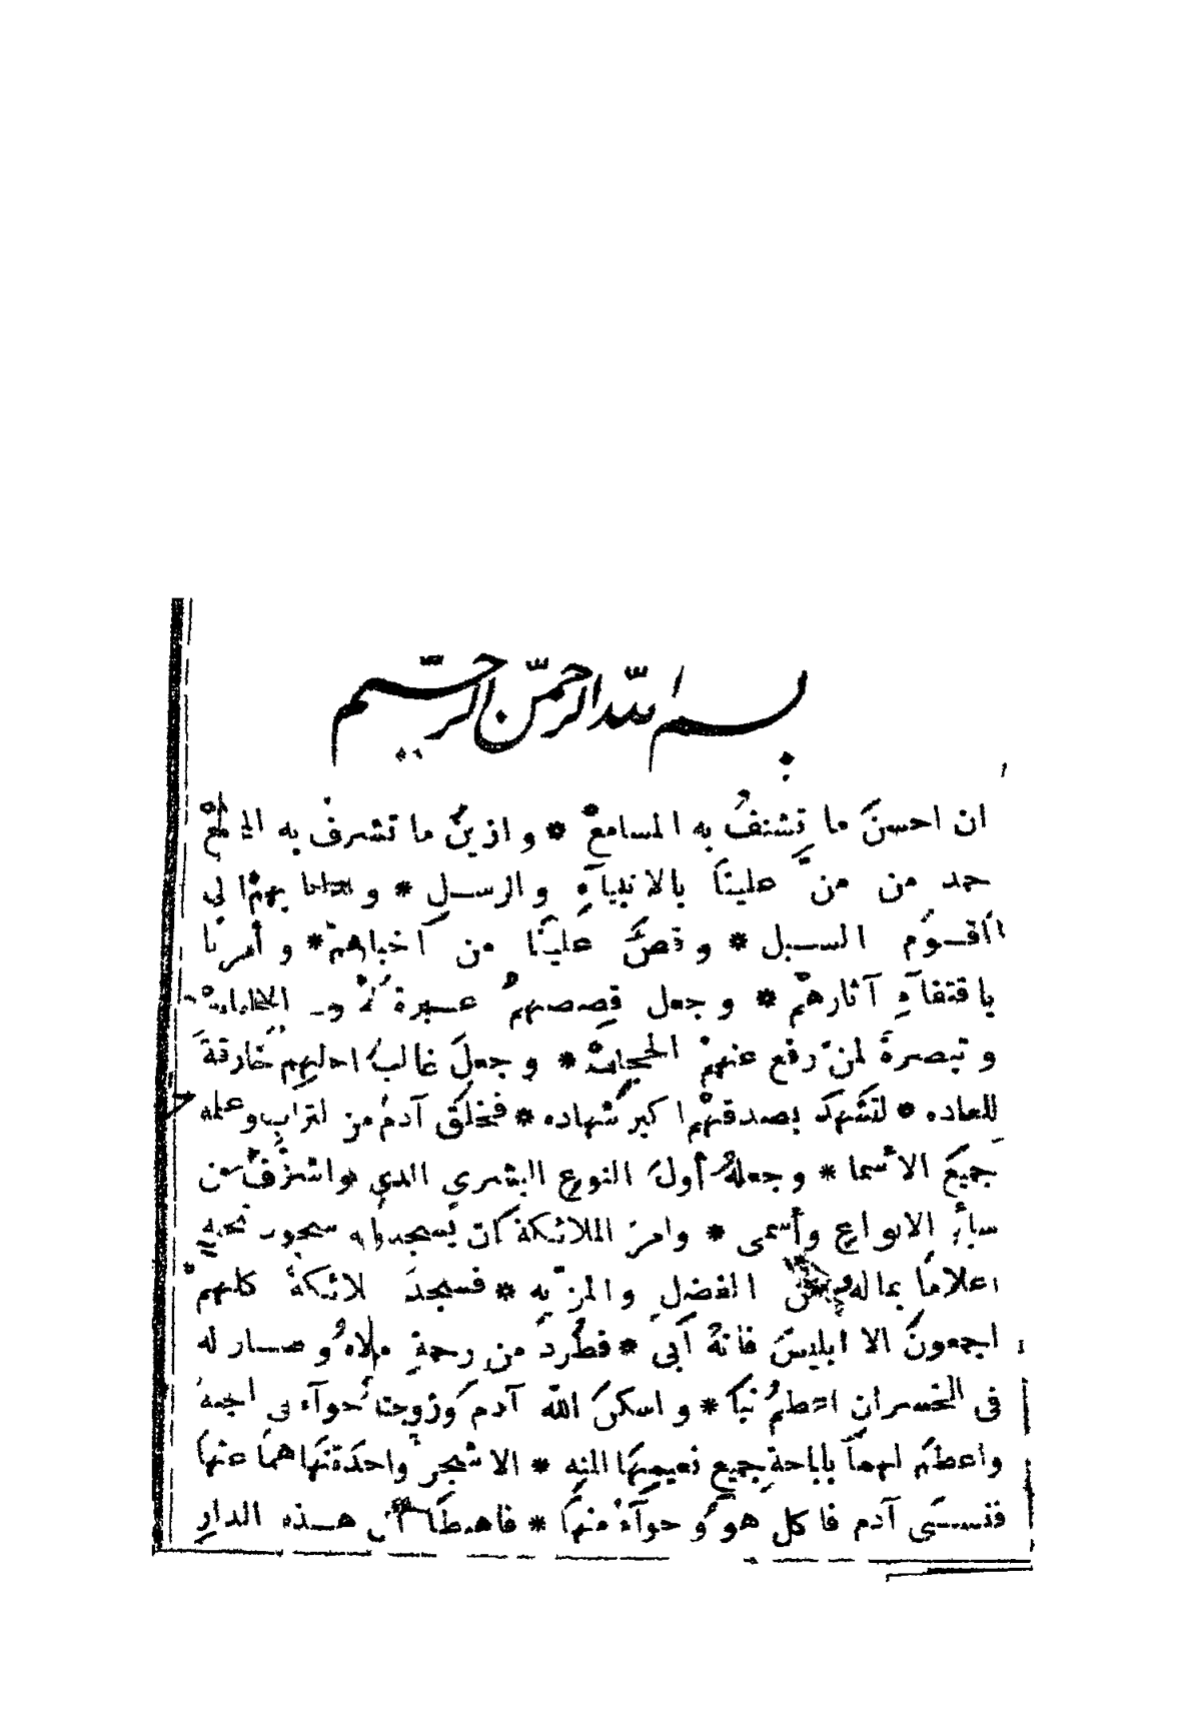 بسم الله الرحمن الرحيم
ان احسنَ ما تشنفُ به المسامعْ * وازينُ ما تشرفْ به
حمد من منَّ علينَا بالانبيآءِ والرسلِ * و بهمْ الى
أقوَم السبل * وقصَّ علينَا من أخبارهمْ * وأمرنَا
باقتفآءِ آثارهمْ * وجعل قصصهمْ عبرة
وتبصرةً لمنْ رفع عنهمْ * وجعلَ غالبَ خارقةَ
للعاده * لتشهدَ بصدقهمْ اكبر شهاده * فخلق آدمَ من التراب وعلمه
جميعَ الاسما * وجعلهُ أولَ النوعِ البشري الذي هو اشرفُ من
سائر الانواعِ وأسمى * وامرَ الملائكةَ كان يسجدوا له سجود تحية
اعلامًا بماله منَ الفضلِ والمزيه * فسجدَ الملائكةُ كلهمْ
اجمعونَ الا ابليسَ فانهُ أبى * فطُردَ من رحمةِ مولاهُ وصار له
فى الخسرانِ اعظمُ نبَا * واسكنَ اللّه آدمَ وزوجتهُ حوآء فى الجنة
واعطَى لهمآ باباحةِ جميعِ نعيمهَا المنه * الا شجرة واحدَة نهَاهما عنهَا
فنسىَ آدم فاكل هوَ وحوآءُ منهَا * فاهبطَا الى هذه الدارِ